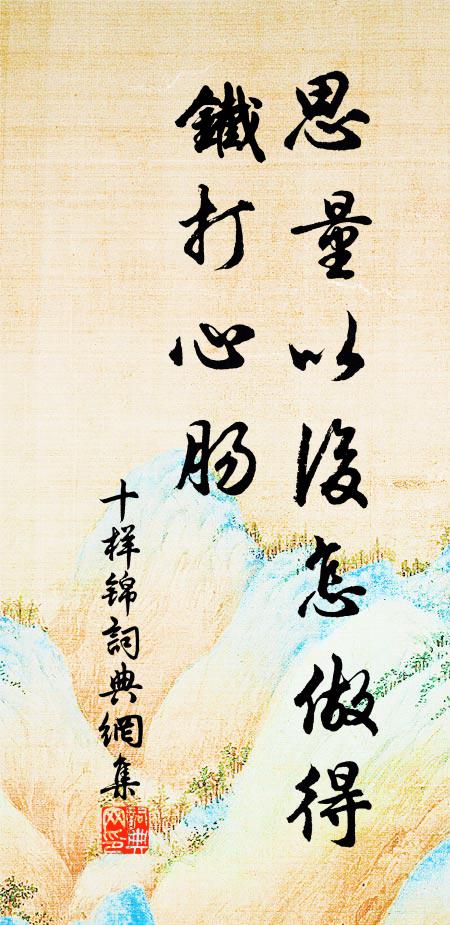 思量以後怎做得
鐵打心腸
十样錦詞典網集
詞典网印